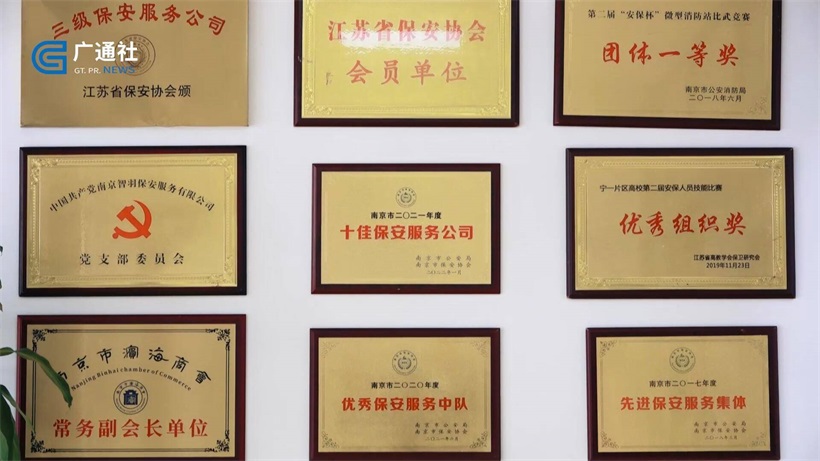 三级保安服务公司
江苏省保安协会颁
广通社
GT. PR. NEWS
江苏省保安协会
会员单位
第二届“安保杯”微型消防站比武竞赛
团体一等奖
南京市公安消防局
二〇一八年六月
中国共产党南京智羽保安服务有限公司
党支部委员会
南京市二〇二一年度
十佳保安服务公司
南京市公安局
南京市保安协会
宁一片区高校第二届安保人员技能比赛
优秀组织奖
江苏省高教学会保卫研究会
2019年11月23日
南京市濱海商會
Nanjing Binhai chamber of Commerce
常务副会长单位
南京市二〇二〇年度
优秀保安服务中队
南京市公安局
南京市保安协会
南京市二〇一七年度
先进保安服务集体
南京市公安局
南京市保安协会